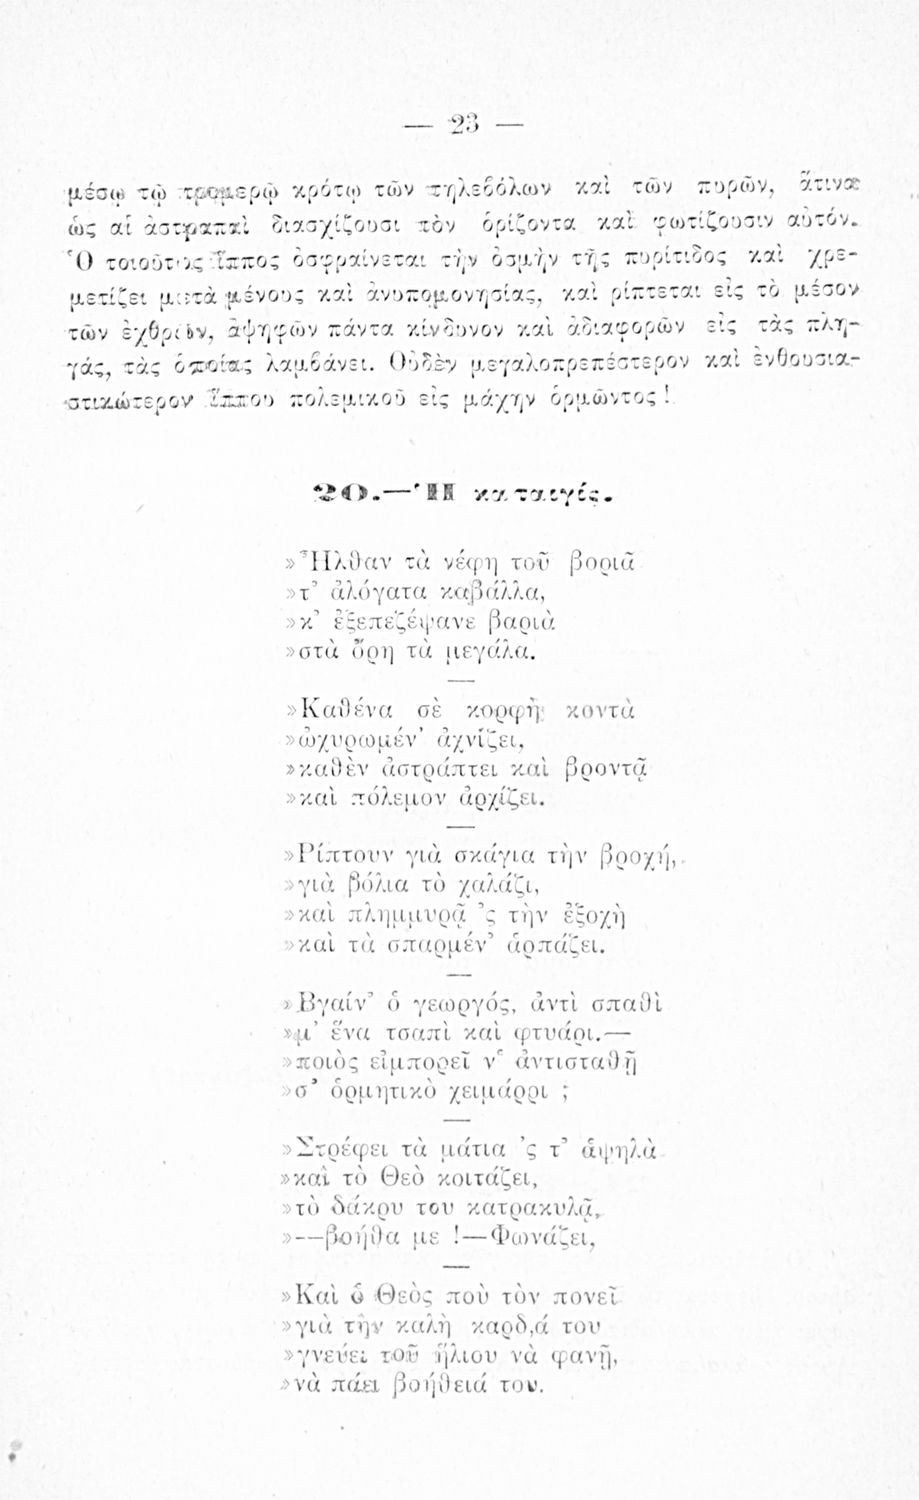 — 23 —
μέσῳ τῷ τρομερῷ κρότῳ τῶν τηλεβόλων καὶ τῶν πυρῶν, ἅτινα
ὡς αἱ ἀστραπαὶ διασχίζουσι τὸν ὁρίζοντα καὶ φωτίζουσιν αὐτόν.
Ὁ τοιοῦτος ἵππος ὀσφραίνεται τὴν ὀσμὴν τῆς πυρίτιδος καὶ χρε-
μετίζει μετὰ μένους καὶ ἀνυπομονησίας, καὶ ρίπτεται εἰς τὸ μέσον
τῶν ἐχθρῶν, ἀψηφῶν πάντα κίνδυνον καὶ ἀδιαφορῶν εἰς τὰς πλη-
γάς, τὰς ὁποίας λαμβάνει. Οὐδὲν μεγαλοπρεπέστερον καὶ ἐνθουσια-
στικώτερον ἵππου πολεμικοῦ εἰς μάχην ὁρμῶντος !
20.—Ἡ καταιγίς.
»Ἦλθαν τὰ νέφη τοῦ βοριᾶ
»τ' ἀλόγατα καβάλλα,
»κ' ἐξεπεζέψανε βαριὰ
»στὰ ὄρη τὰ μεγάλα.
»Καθένα σὲ κορφὴ κοντὰ
»ὠχυρωμέν' ἀχνίζει,
»καθὲν ἀστράπτει καὶ βροντᾷ
»καὶ πόλεμον ἀρχίζει.
»Ρίπτουν γιὰ σκάγια τὴν βροχή,
»γιὰ βόλια τὸ χαλάζι,
»καὶ πλημμυρᾷ 'ς τὴν ἐξοχὴ
»καὶ τὰ σπαρμέν' ἁρπάζει.
»Βγαίν' ὁ γεωργός, ἀντὶ σπαθὶ
»μ' ἕνα τσαπὶ καὶ φτυάρι.—
»ποιὸς εἰμπορεῖ ν' ἀντισταθῇ
»σ' ὁρμητικὸ χειμάρρι ;
»Στρέφει τὰ μάτια 'ς τ' ἀψηλὰ
»καὶ τὸ Θεὸ κοιτάζει,
»τὸ δάκρυ του κατρακυλᾷ,
»—βοήθα με !—Φωνάζει,
»Καὶ ὁ Θεὸς ποὺ τὸν πονεῖ
»γιὰ τὴν καλὴ καρδ,ά του
»γνεύει τοῦ ἥλιου νὰ φανῇ,
»νὰ πάει βοήθειά του.